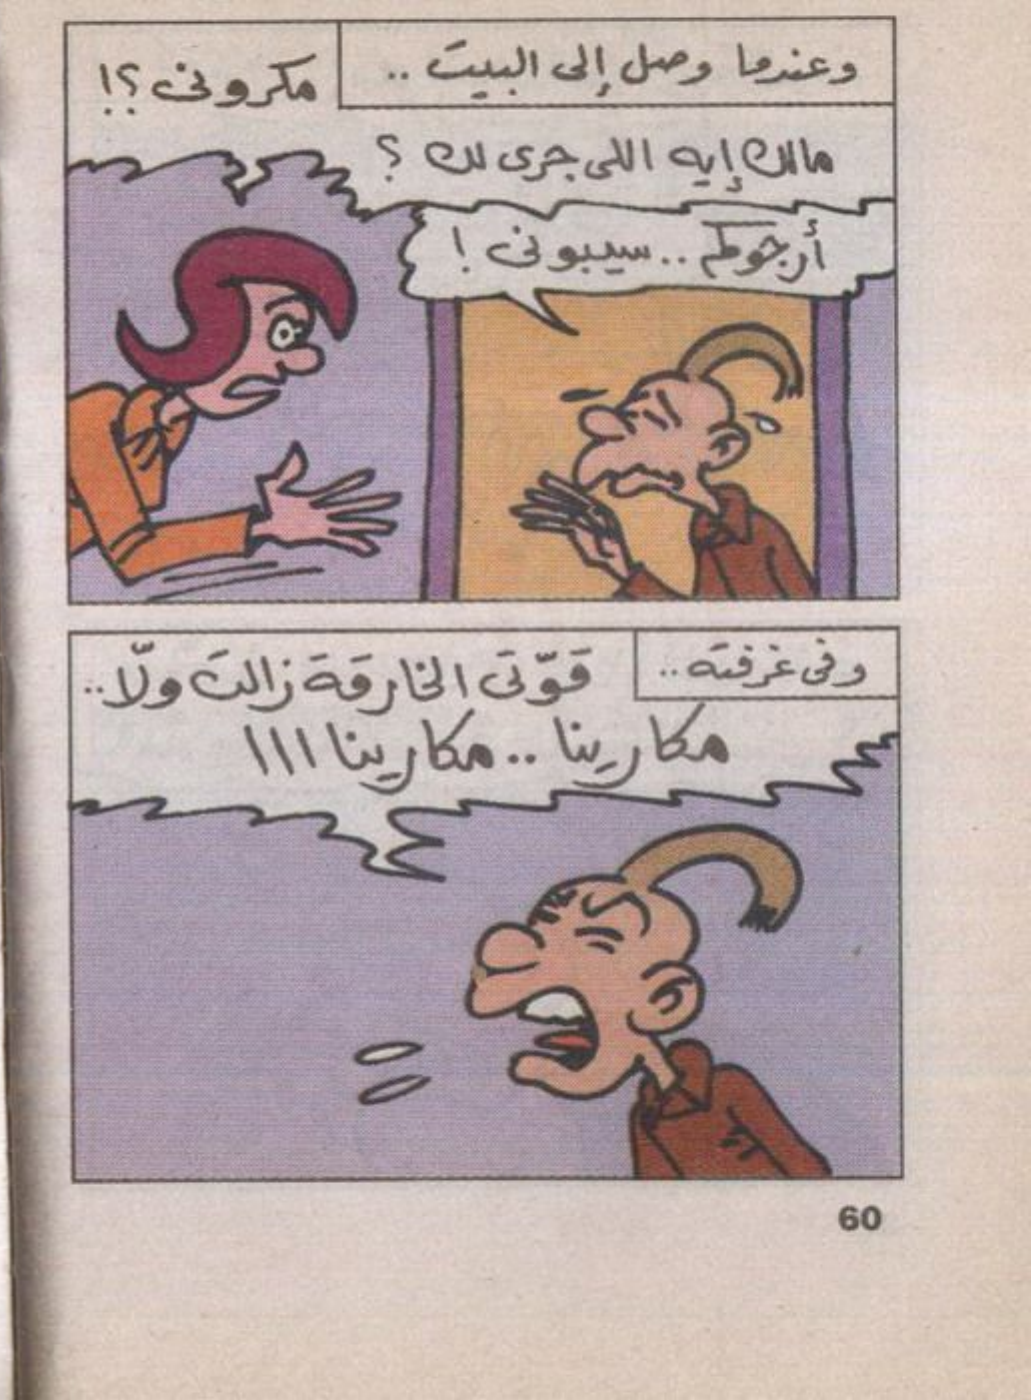 وعندما وصل إلى البيت ..
مكرونى ؟!
مالك إيه اللى جرى لك ؟
أرجوكم .. سيبونى !
وفى غرفته ..
قوّتى الخارقة زالت ولّا ..
مكارينا .. مكارينا ااا
60